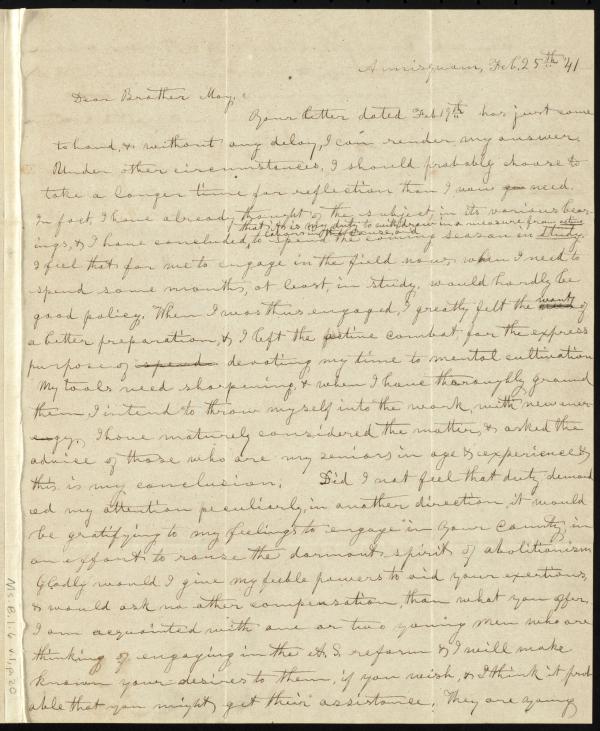 Annisquam, Feb. 25th '41
Dear Brother May,
Your letter dated Feb 19th has just come
to hand, & without any delay, I can render my answer.
Under other circumstances, I should probably choose to
take a longer time for reflection than I now need.
In fact, I have already thought of the subject, in its various bear-
that it is my duty to withdraw in a measure from active
labors in the cause, and
ings, & I have concluded, to spend the coming season in study.
I feel that for me to engage in the field now, when I need to
spend some months, at least, in study, would hardly be
good policy. When I was thus engaged, I greatly felt the want of
a better preparation, & I left the active combat for the express
purpose of spend devoting my time to mental cultivation
My tools need sharpening, & when I have thoroughly ground
them I intend to throw myself into the work, with new ener-
gy. I have maturely considered the matter, & asked the
advice of those who are my seniors in age & experience &
this is my conclusion. Did I not feel that duty demand
ed my attention peculiarly, in another direction, it would
be gratifying to my feelings to engage in your County, in
an effort to rouse the dormant spirit of abolitionism
Gladly would I give my feeble powers to aid your exertions,
& would ask no other compensation, than what you offer.
I am acquainted with one or two young men who are
thinking of engaging in the A. S. reform & I will make
known your desires to them, if you wish, & I think it prob
able that you might get their assistance. They are young
Ms. B. 1. 6 v. 1, p. 20